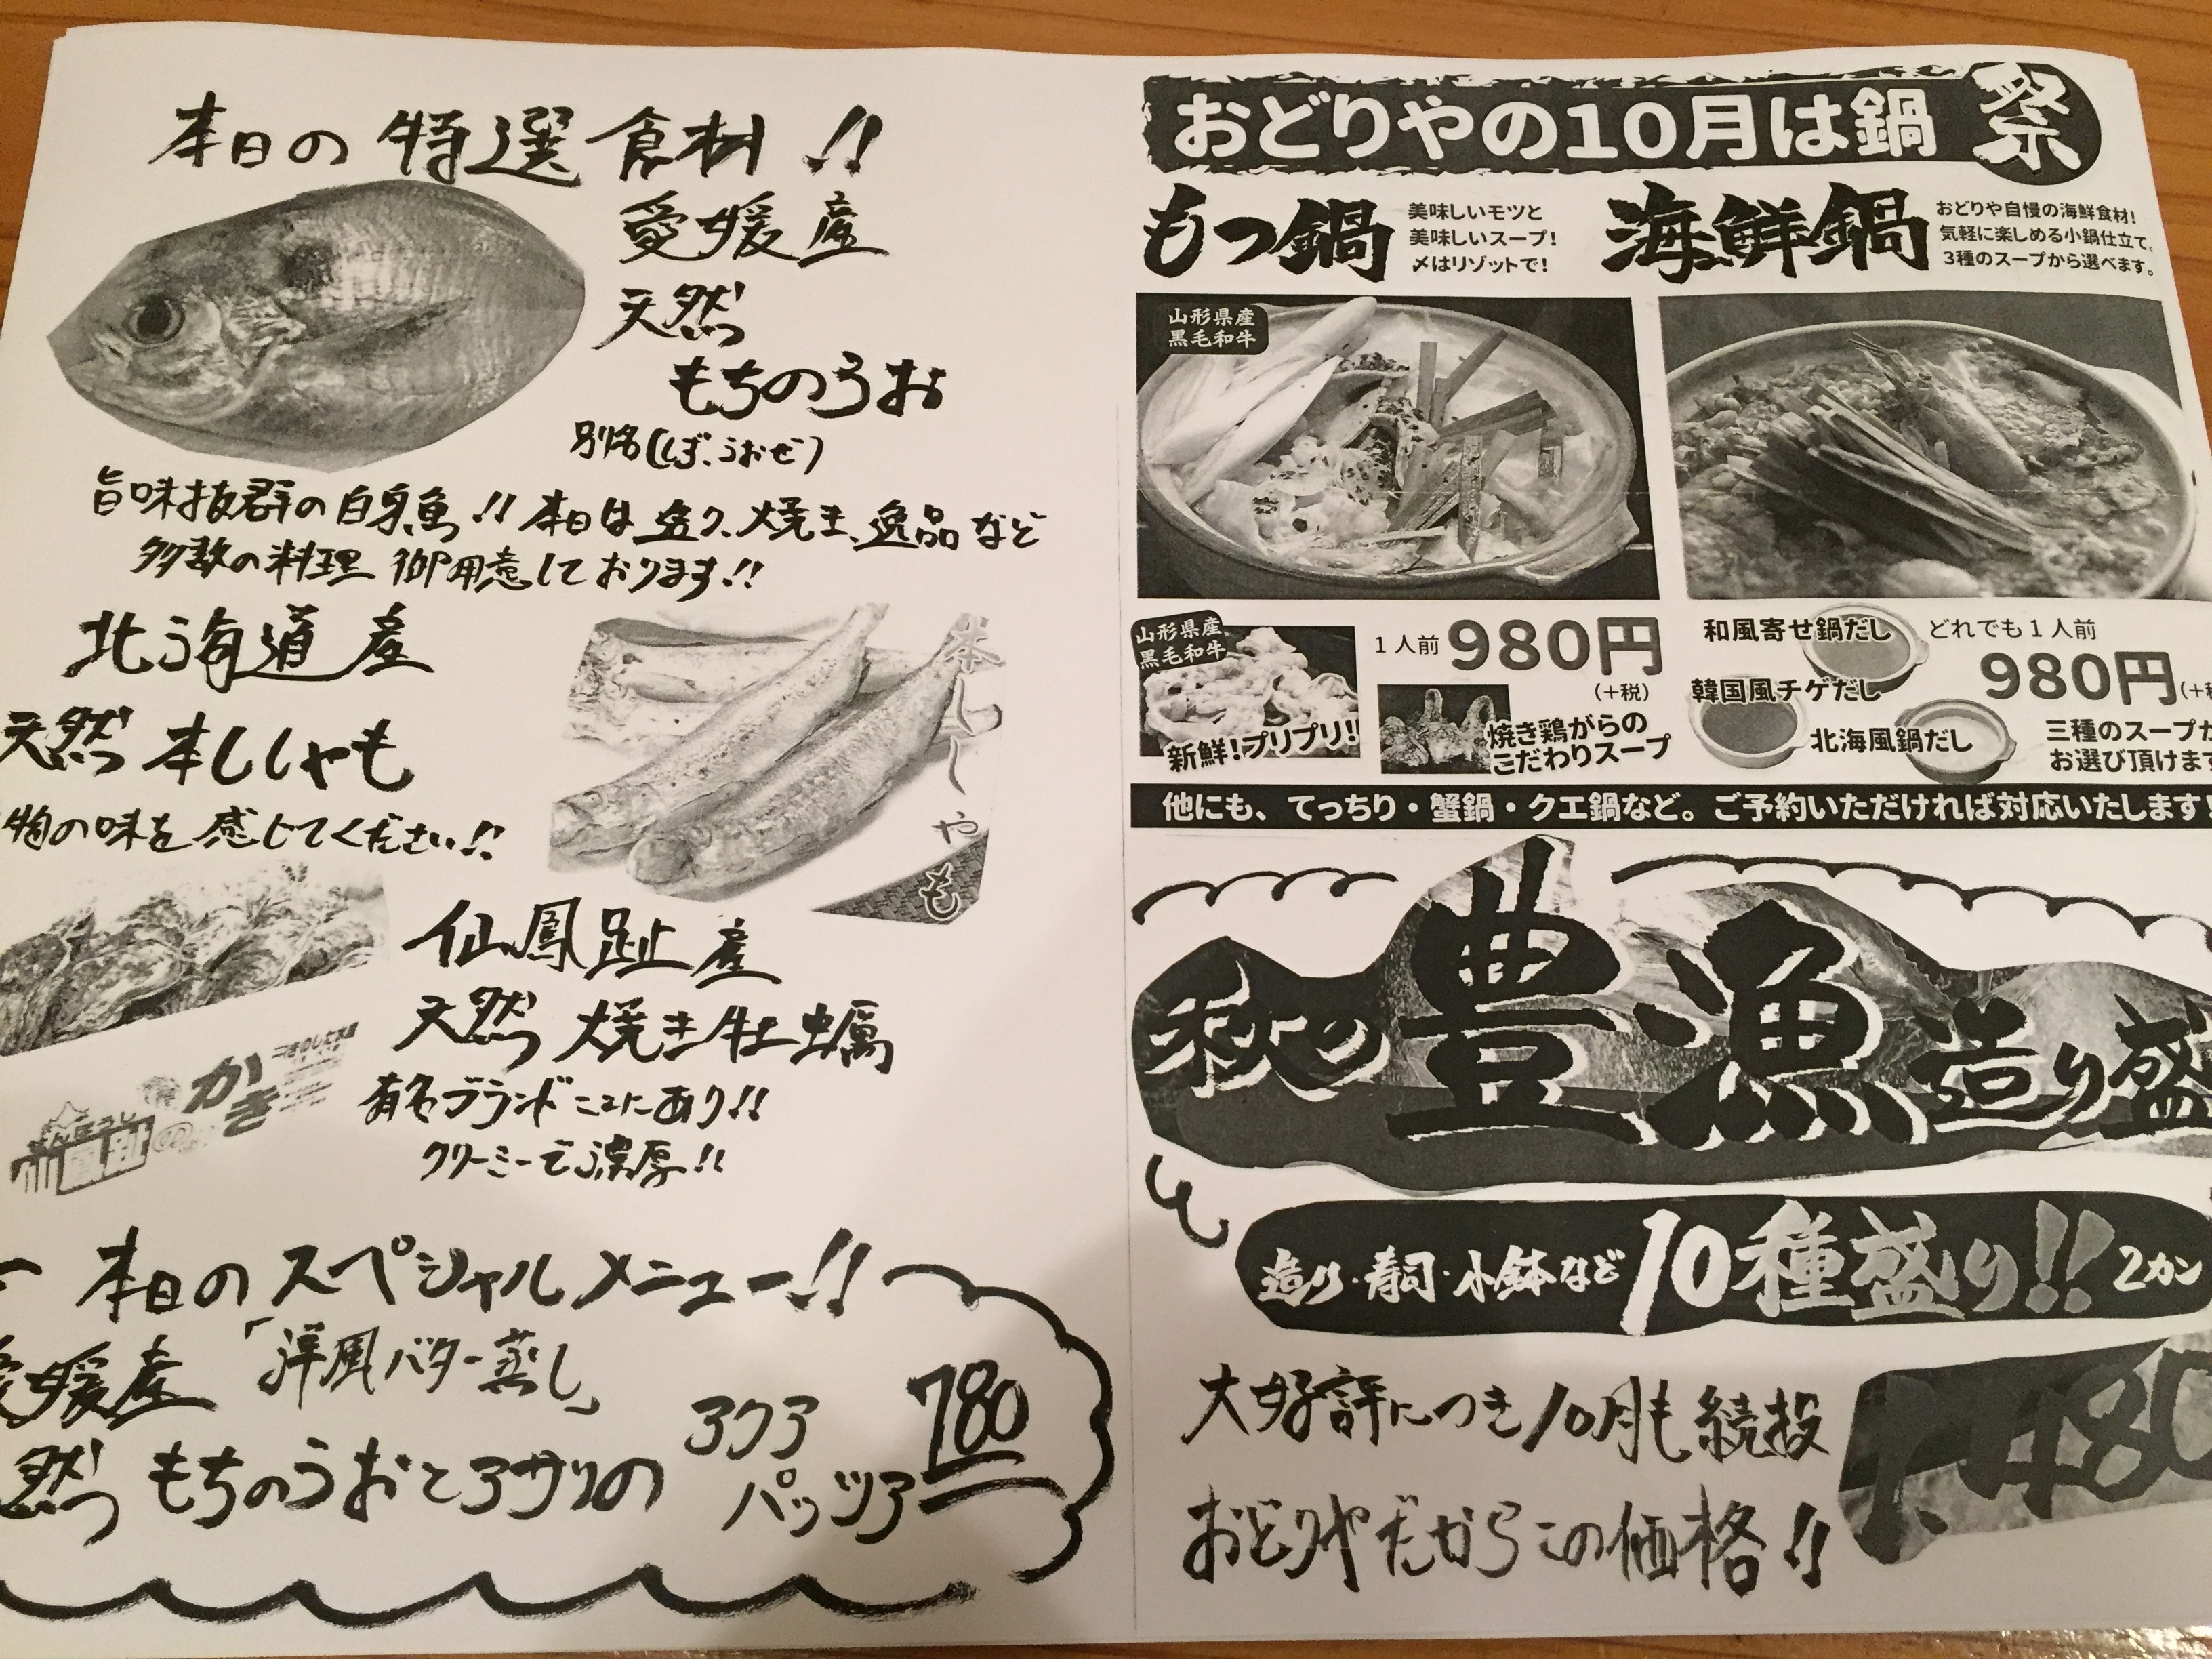 本日の特選食材!!
愛媛産
天然
もちのうお
別名(しず、うおぜ)
旨味抜群の白身魚!! 本日は造り、焼き、逸品など
多数の料理 御用意しております!!
北海道産
天然 本ししゃも
物の味を感じてください!!
本ししゃも
仙鳳趾産
天然 焼き牡蠣
有名ブランドここにあり!!
クリーミーで濃厚!!
せんぽうし
仙鳳趾の
かき
本日のスペシャルメニュー!!
媛産
「洋風バター蒸し」
然 もちのうおとアサリの
アクア
パッツア
780
おどりやの10月は鍋祭
もつ鍋
美味しいモツと
美味しいスープ!
〆はリゾットで!
海鮮鍋
おどりや自慢の海鮮食材!
気軽に楽しめる小鍋仕立て。
3種のスープから選べます。
山形県産
黒毛和牛
山形県産
黒毛和牛
新鮮!プリプリ!!
1人前980円
(+税)
焼き鶏がらの
こだわりスープ
和風寄せ鍋だし
韓国風チゲだし
北海風鍋だし
どれでも1人前
980円(+
三種のスープ
お選び頂けます
他にも、てっちり・蟹鍋・クエ鍋など。ご予約いただければ対応いたします
秋の豊漁造り盛
造り・寿司・小鉢など10種盛り!!2カン
大好評につき10月も続投
おどりやだからこの価格!!
1,480